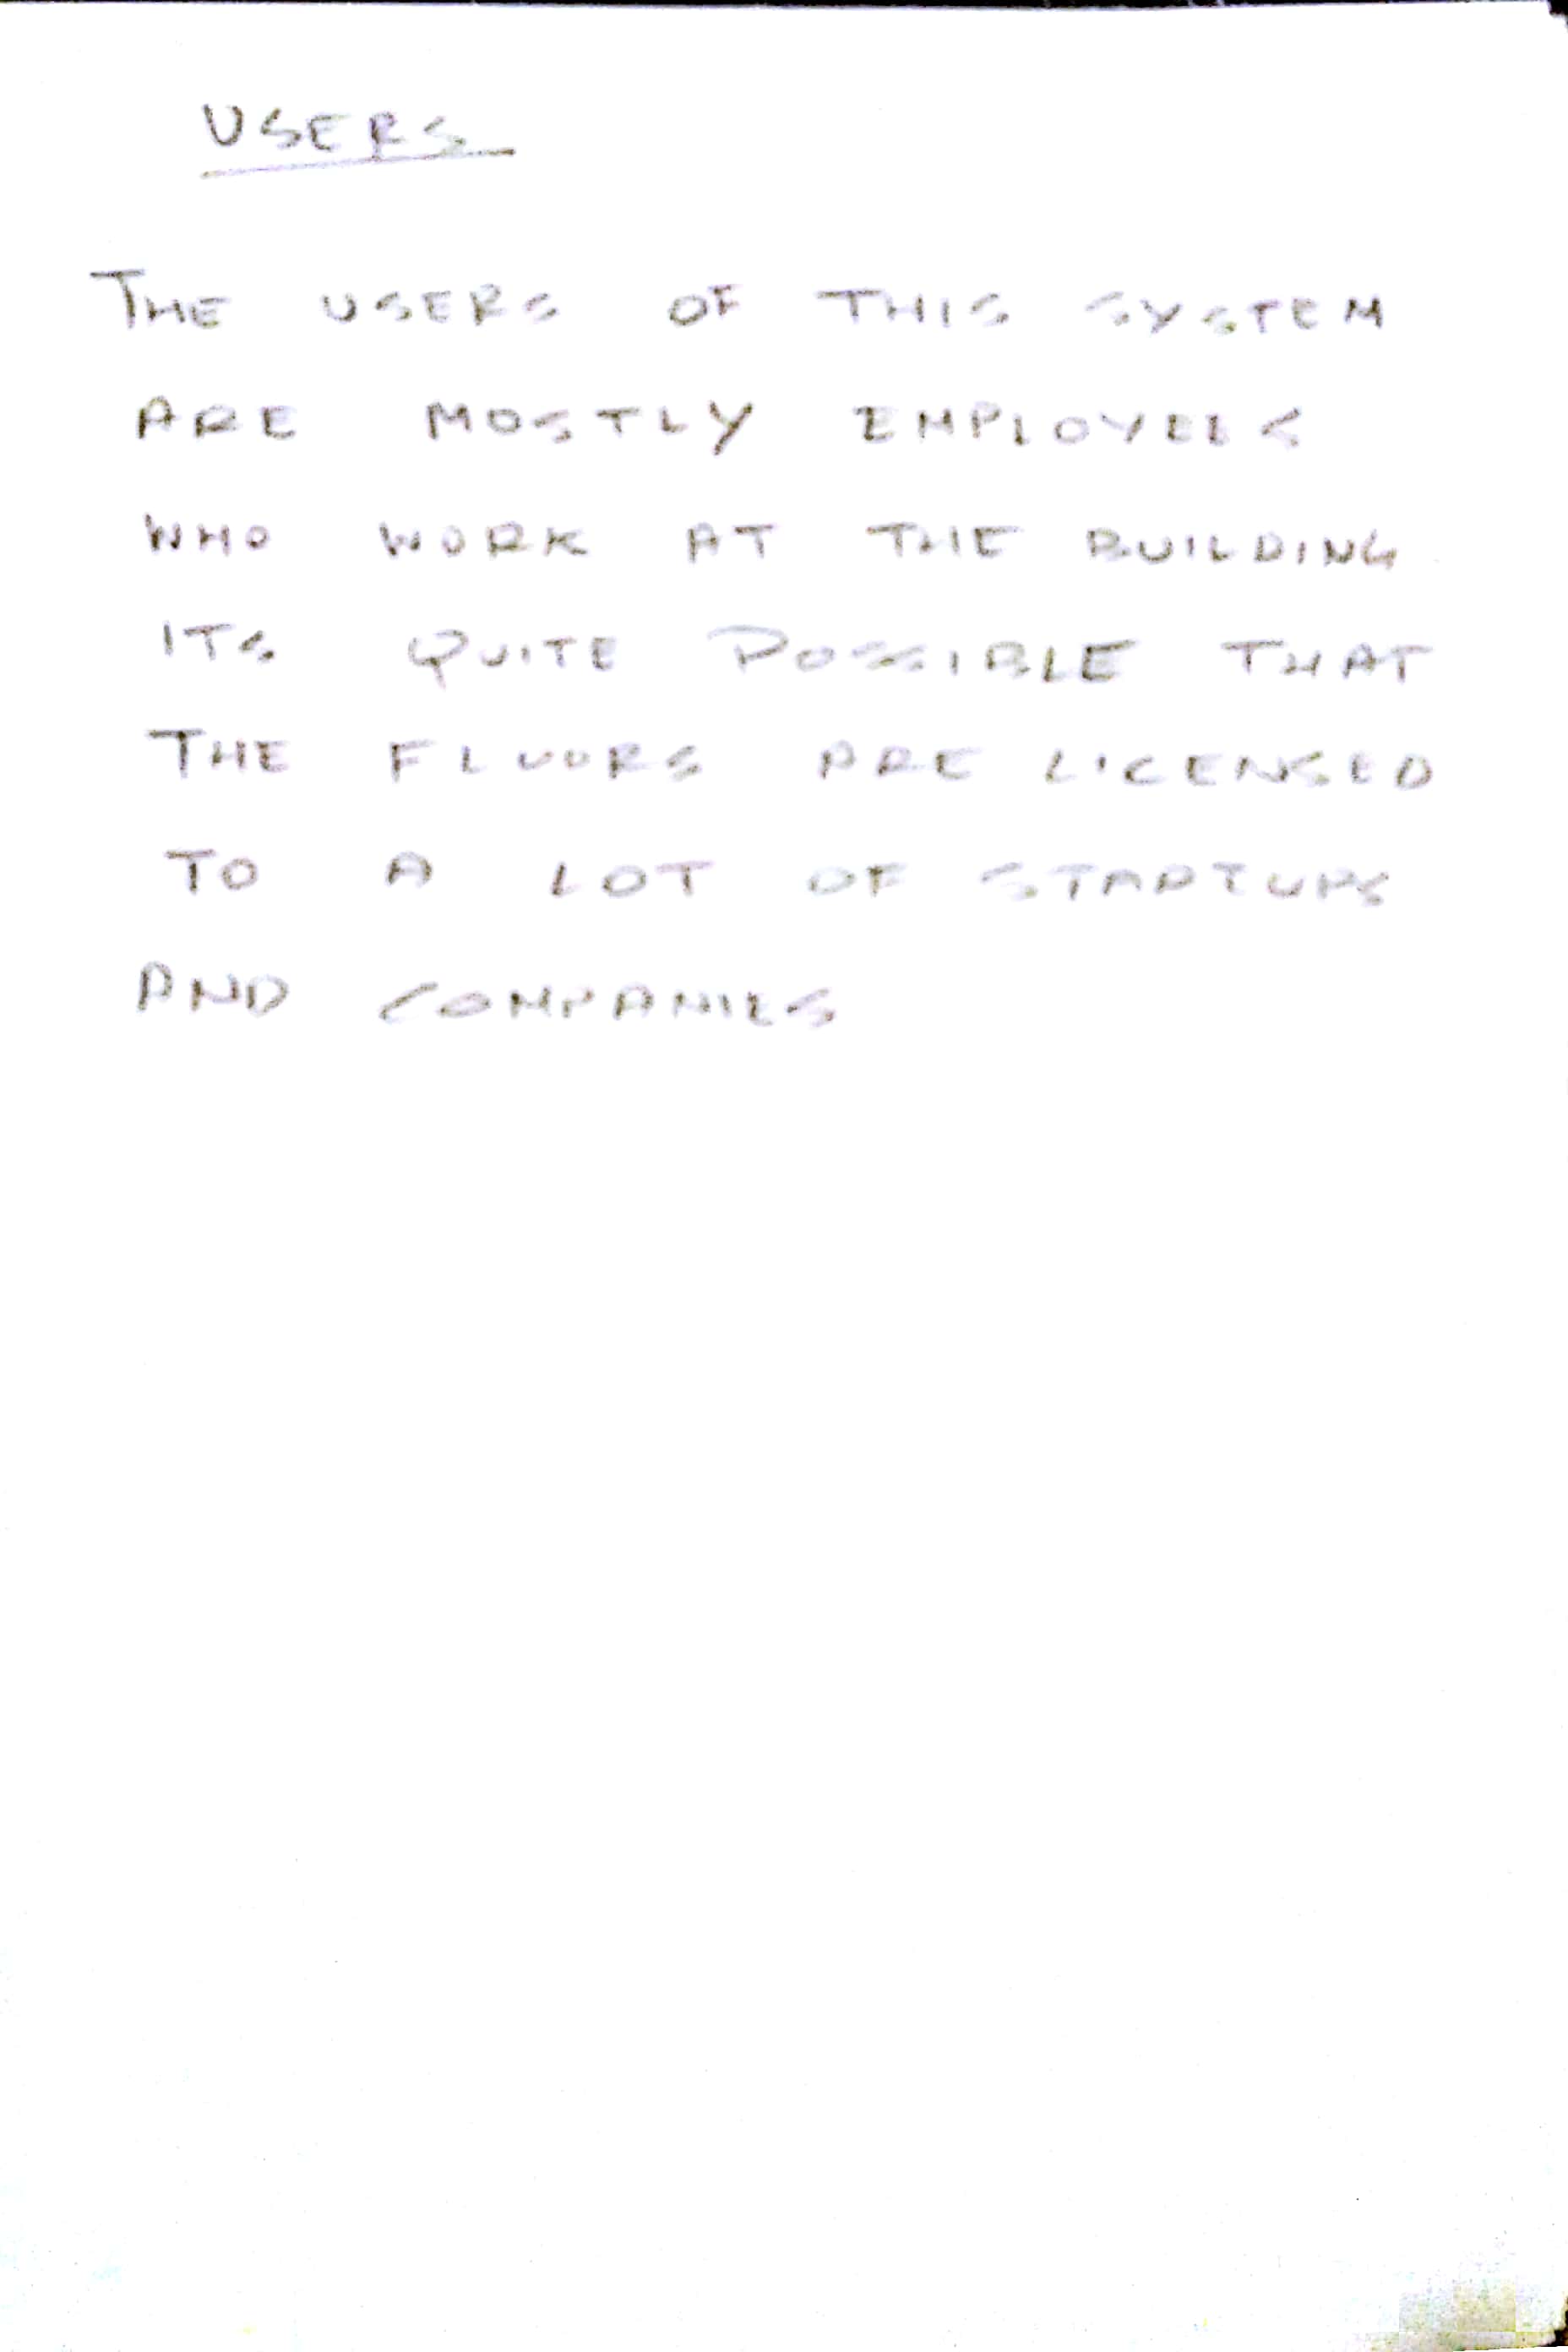 USERS
THE USERS OF THIS SYSTEM
ARE MOSTLY EMPLOYEES
WHO WORK AT THE BUILDING
ITS QUITE POSSIBLE THAT
THE FLOORS ARE LICENSED
TO A LOT OF STARTUPS
AND COMPANIES